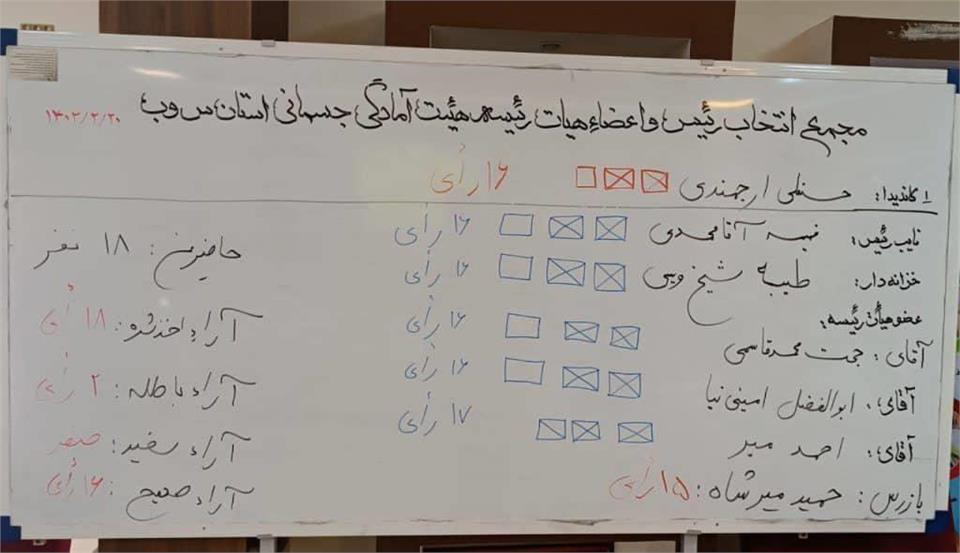 مجمع انتخاب رئیس و اعضاء هیات رئیسه هیئت آمادگی جسمانی استان س و ب
۱۴۰۲/۲/۲۰
۱ کاندیدا: حسنعلی ارجمندی ۱۶ رأی
نایب رئیس: نفیسه آقامحمدی ۱۶ رأی
خزانه دار: طیبه شیخ ویسی ۱۶ رأی
عضو هیأت رئیسه: ۱۶ رأی
آقای: حجت محمدقاسمی
آقای: ابوالفضل امینی نیا ۱۶ رأی
آقای: احمد میر ۱۷ رأی
بازرس: حمید میرشاه: ۱۵ رأی
حاضرین: ۱۸ نفر
آراء اخذ شده: ۱۸ رأی
آراء باطله: ۲ رأی
آراء سفید: صفر
آراء صحیح: ۱۶ رأی